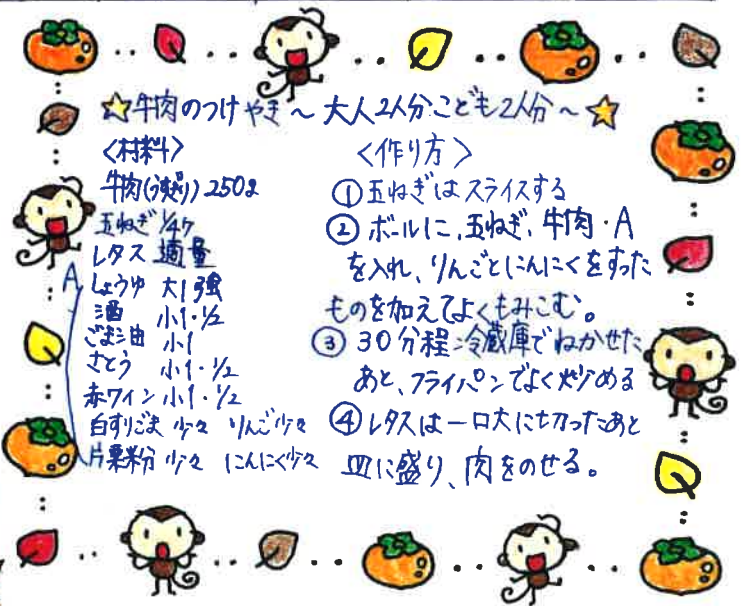 ☆牛肉のつけやき～大人2人分こども2人分～☆
<材料>
牛肉(うす切り) 250g
玉ねぎ 1/4ケ
レタス 適量
A
しょうゆ 大1強
酒 小1・1/2
ごま油 小1
さとう 小1・1/2
赤ワイン 小1・1/2
白すりごま 少々 りんご少々
片栗粉 少々 にんにく少々
<作り方>
①玉ねぎはスライスする
②ボールに、玉ねぎ、牛肉・A
を入れ、りんごとにんにくをすった
ものを加えてよくもみこむ。
③30分程冷蔵庫でねかせた
あと、フライパンでよく炒める
④レタスは一口大に切ったあと
皿に盛り、肉をのせる。